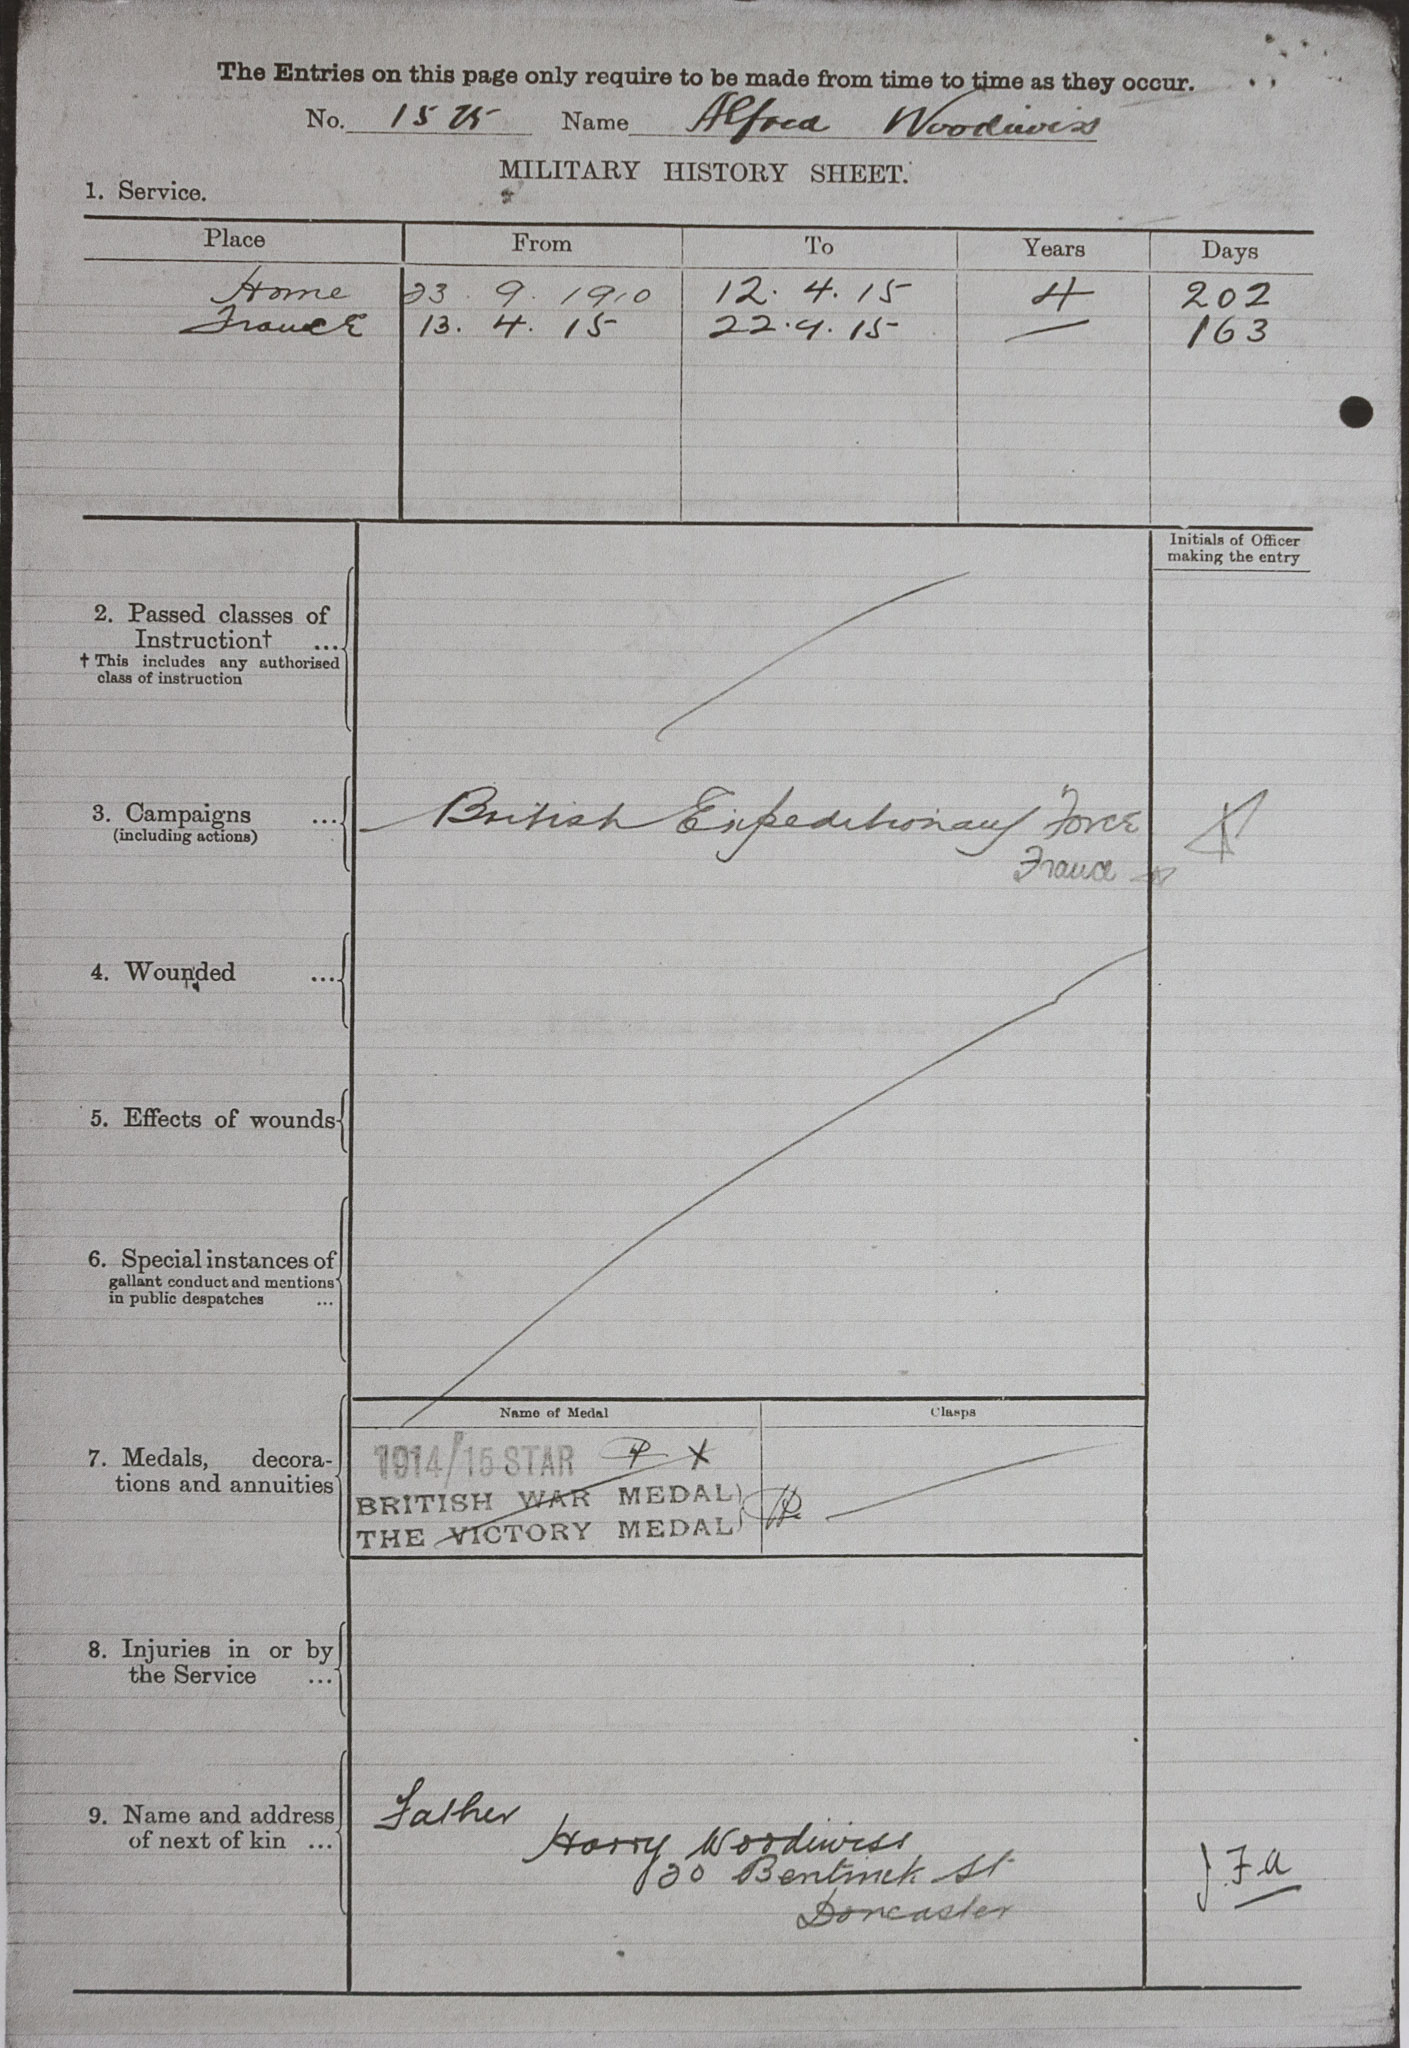 The Entries on this page only require to be made from time to time as they occur.
No. 1525 Name Alfred Woodiwiss
MILITARY HISTORY SHEET.
1. Service.
Place From To Years Days
Home 23. 9. 1910 12. 4. 15 4 202
France 13. 4. 15 22. 9. 15 — 163
Initials of Officer
making the entry
2. Passed classes of
Instruction† ...
† This includes any authorised
class of instruction
3. Campaigns ... British Expeditionary Force
(including actions)
France
4. Wounded ...
5. Effects of wounds
6. Special instances of
gallant conduct and mentions
in public despatches ...
Name of Medal Clasps
7. Medals, decora-
tions and annuities
1914/15 STAR
BRITISH WAR MEDAL
THE VICTORY MEDAL
8. Injuries in or by
the Service ...
9. Name and address
of next of kin ...
Father
Harry Woodiwiss
30 Bentinck St
Doncaster
J.F.A